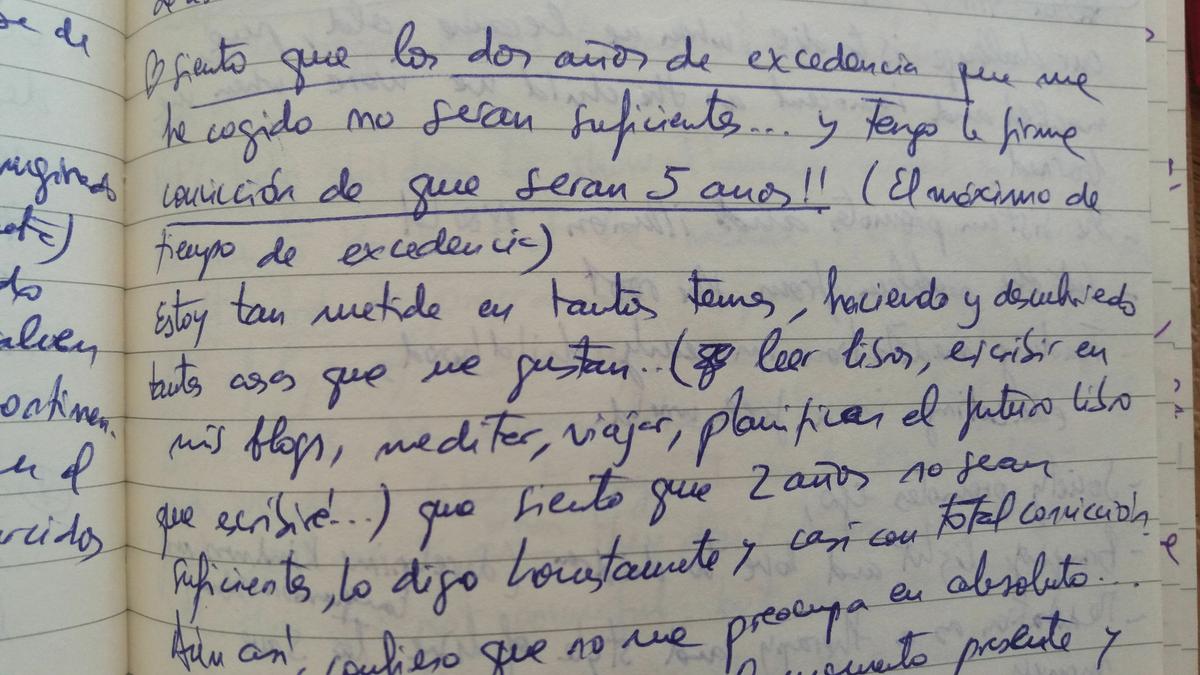 se de
siento que los dos años de excedencia que me
he cogido no seran suficientes... y tengo la firme
convicción de que seran 5 anos!! (El máximo de
tiempo de excedencia)
Estoy tan metida en tantos temas, haciendo y descubriedo
tantas cosas que me gustan..( leer libros, escribir en
mis blogs, meditar, viajar, planificar el futuro libro
que escribiré...) que siento que 2 años no sean
suficientes, lo digo honestamente y casi con total convicción
Aún así, confieso que no me preocupa en absoluto...
momento presente y
do
en el